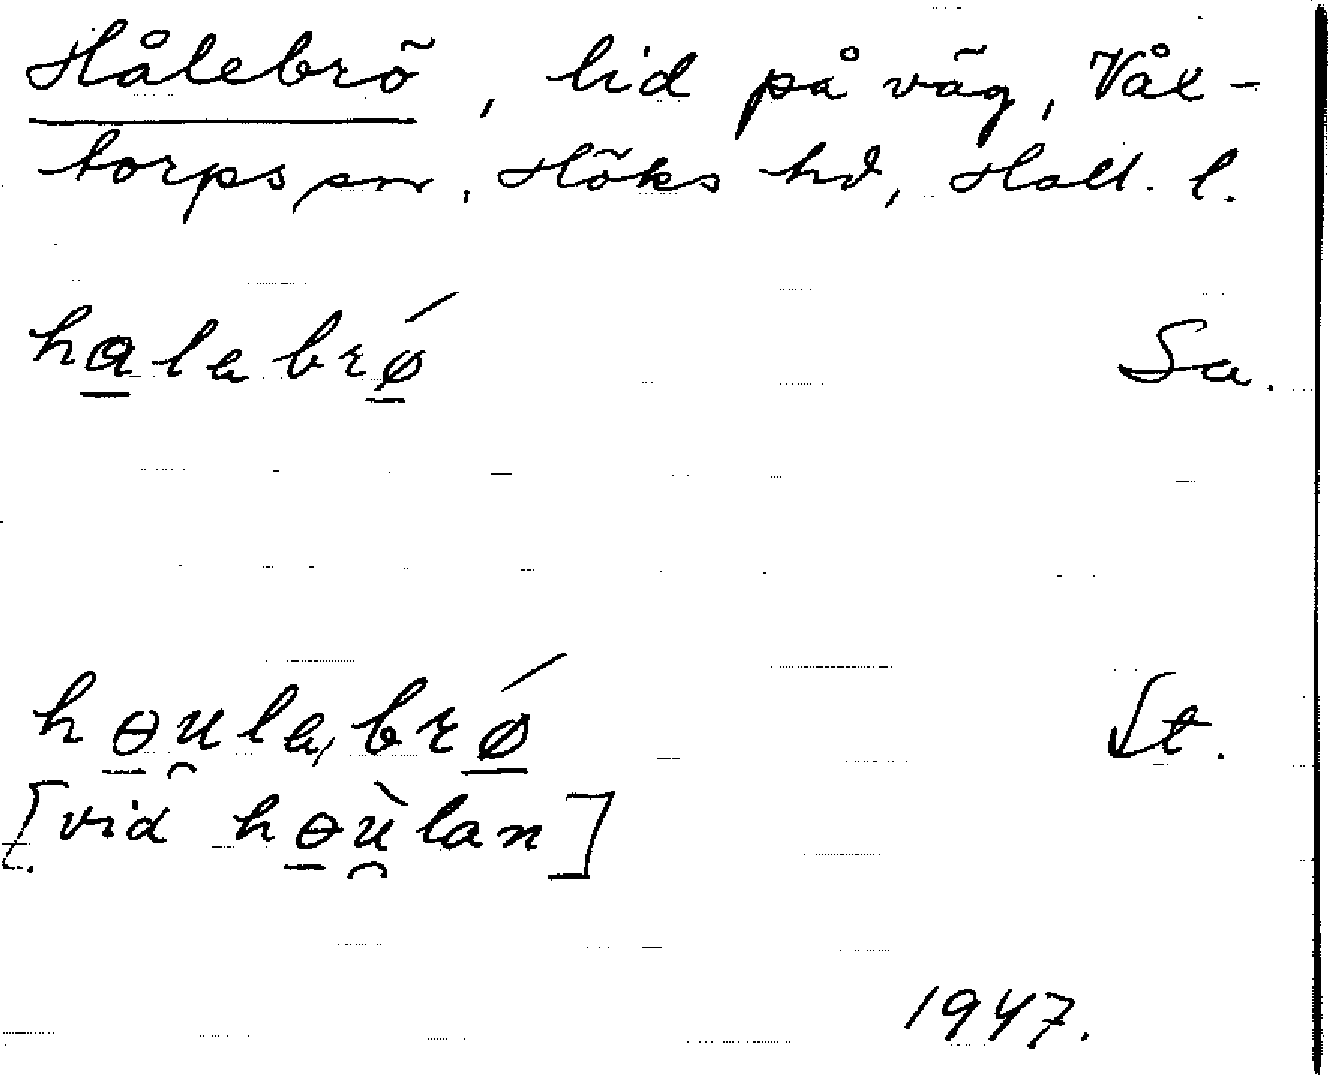 Hålebrö, lid på väg, Våx-
torps sn, Höks hd, Hall. l.
halabrǿ Sa.
hɵu̯labrǿ St.
[vid hɵù̯lan]
1947.